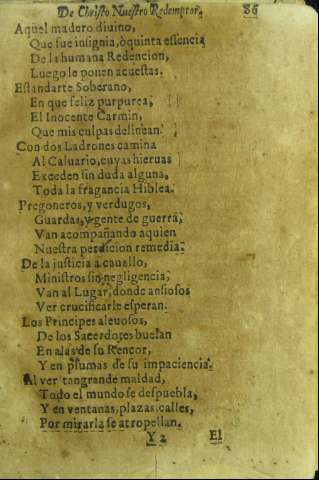 De Christo Nuestro Redemptor. 86
Aquel madero diuino,
Que fue insignia, ò quinta essencia
De la humana Redencion,
Luego le ponen acuestas.
Estandarte Soberano,
En que feliz purpurea,
El Inocente Carmin,
Que mis culpas delinean.
Con dos Ladrones camina
Al Caluario, cuyas hieruas
Exceden sin duda alguna,
Toda la fragancia Hiblea.
Pregoneros, y verdugos,
Guardas, y gente de guerra,
Van acompañando aquien
Nuestra perdicion remedia.
De la justicia a cauallo,
Ministros sin negligencia,
Van al Lugar, donde ansiosos
Ver crucificarle esperan.
Los Principes aleuosos,
De los Sacerdotes buelan
En alas de su Rencor,
Y en plumas de su impaciencia.
Al ver tangrande maldad,
Todo el mundo se despuebla,
Y en ventanas, plazas, calles,
Por mirarla se atropellan.
Y 2 El